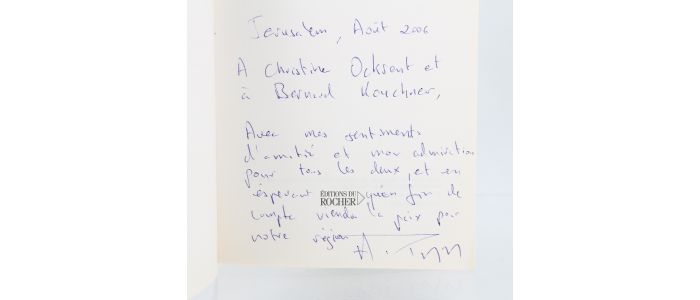 Jerusalem, Août 2006
A Christine Ockrent et
à Bernard Kouchner,
Avec mes sentiments
d'amitié et mon admiration
pour tous les deux, et en
éspérant qu'en fin de
compte viendra la paix pour
notre région
ÉDITIONS DU
ROCHER